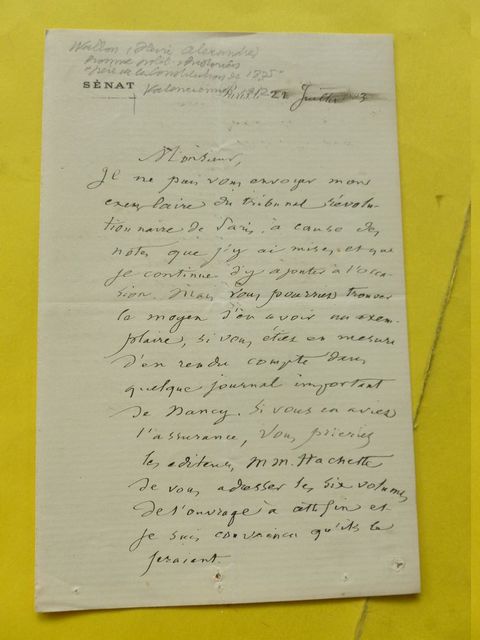 Wallon (Henri Alexandre)
homme polit. historien
"père de la Constitution de 1875"
SÉNAT
Valenciennes 1812
22 Juillet
Monsieur,
Je ne puis vous envoyer mon
exemplaire du tribunal révolu-
tionnaire de Paris, à cause des
notes que j'y ai mises et que
je continue d'y ajouter à l'occa-
sion. Mais vous pourriez trouver
le moyen d'en avoir un exem-
plaire, si vous étiez en mesure
d'en rendre compte dans
quelque journal important
de Nancy. Si vous en aviez
l'assurance, vous prieriez
les editeurs, MM. Hachette
de vous adresser les six volumes
de l'ouvrage à cette fin et
je suis convaincu qu'ils le
feraient.